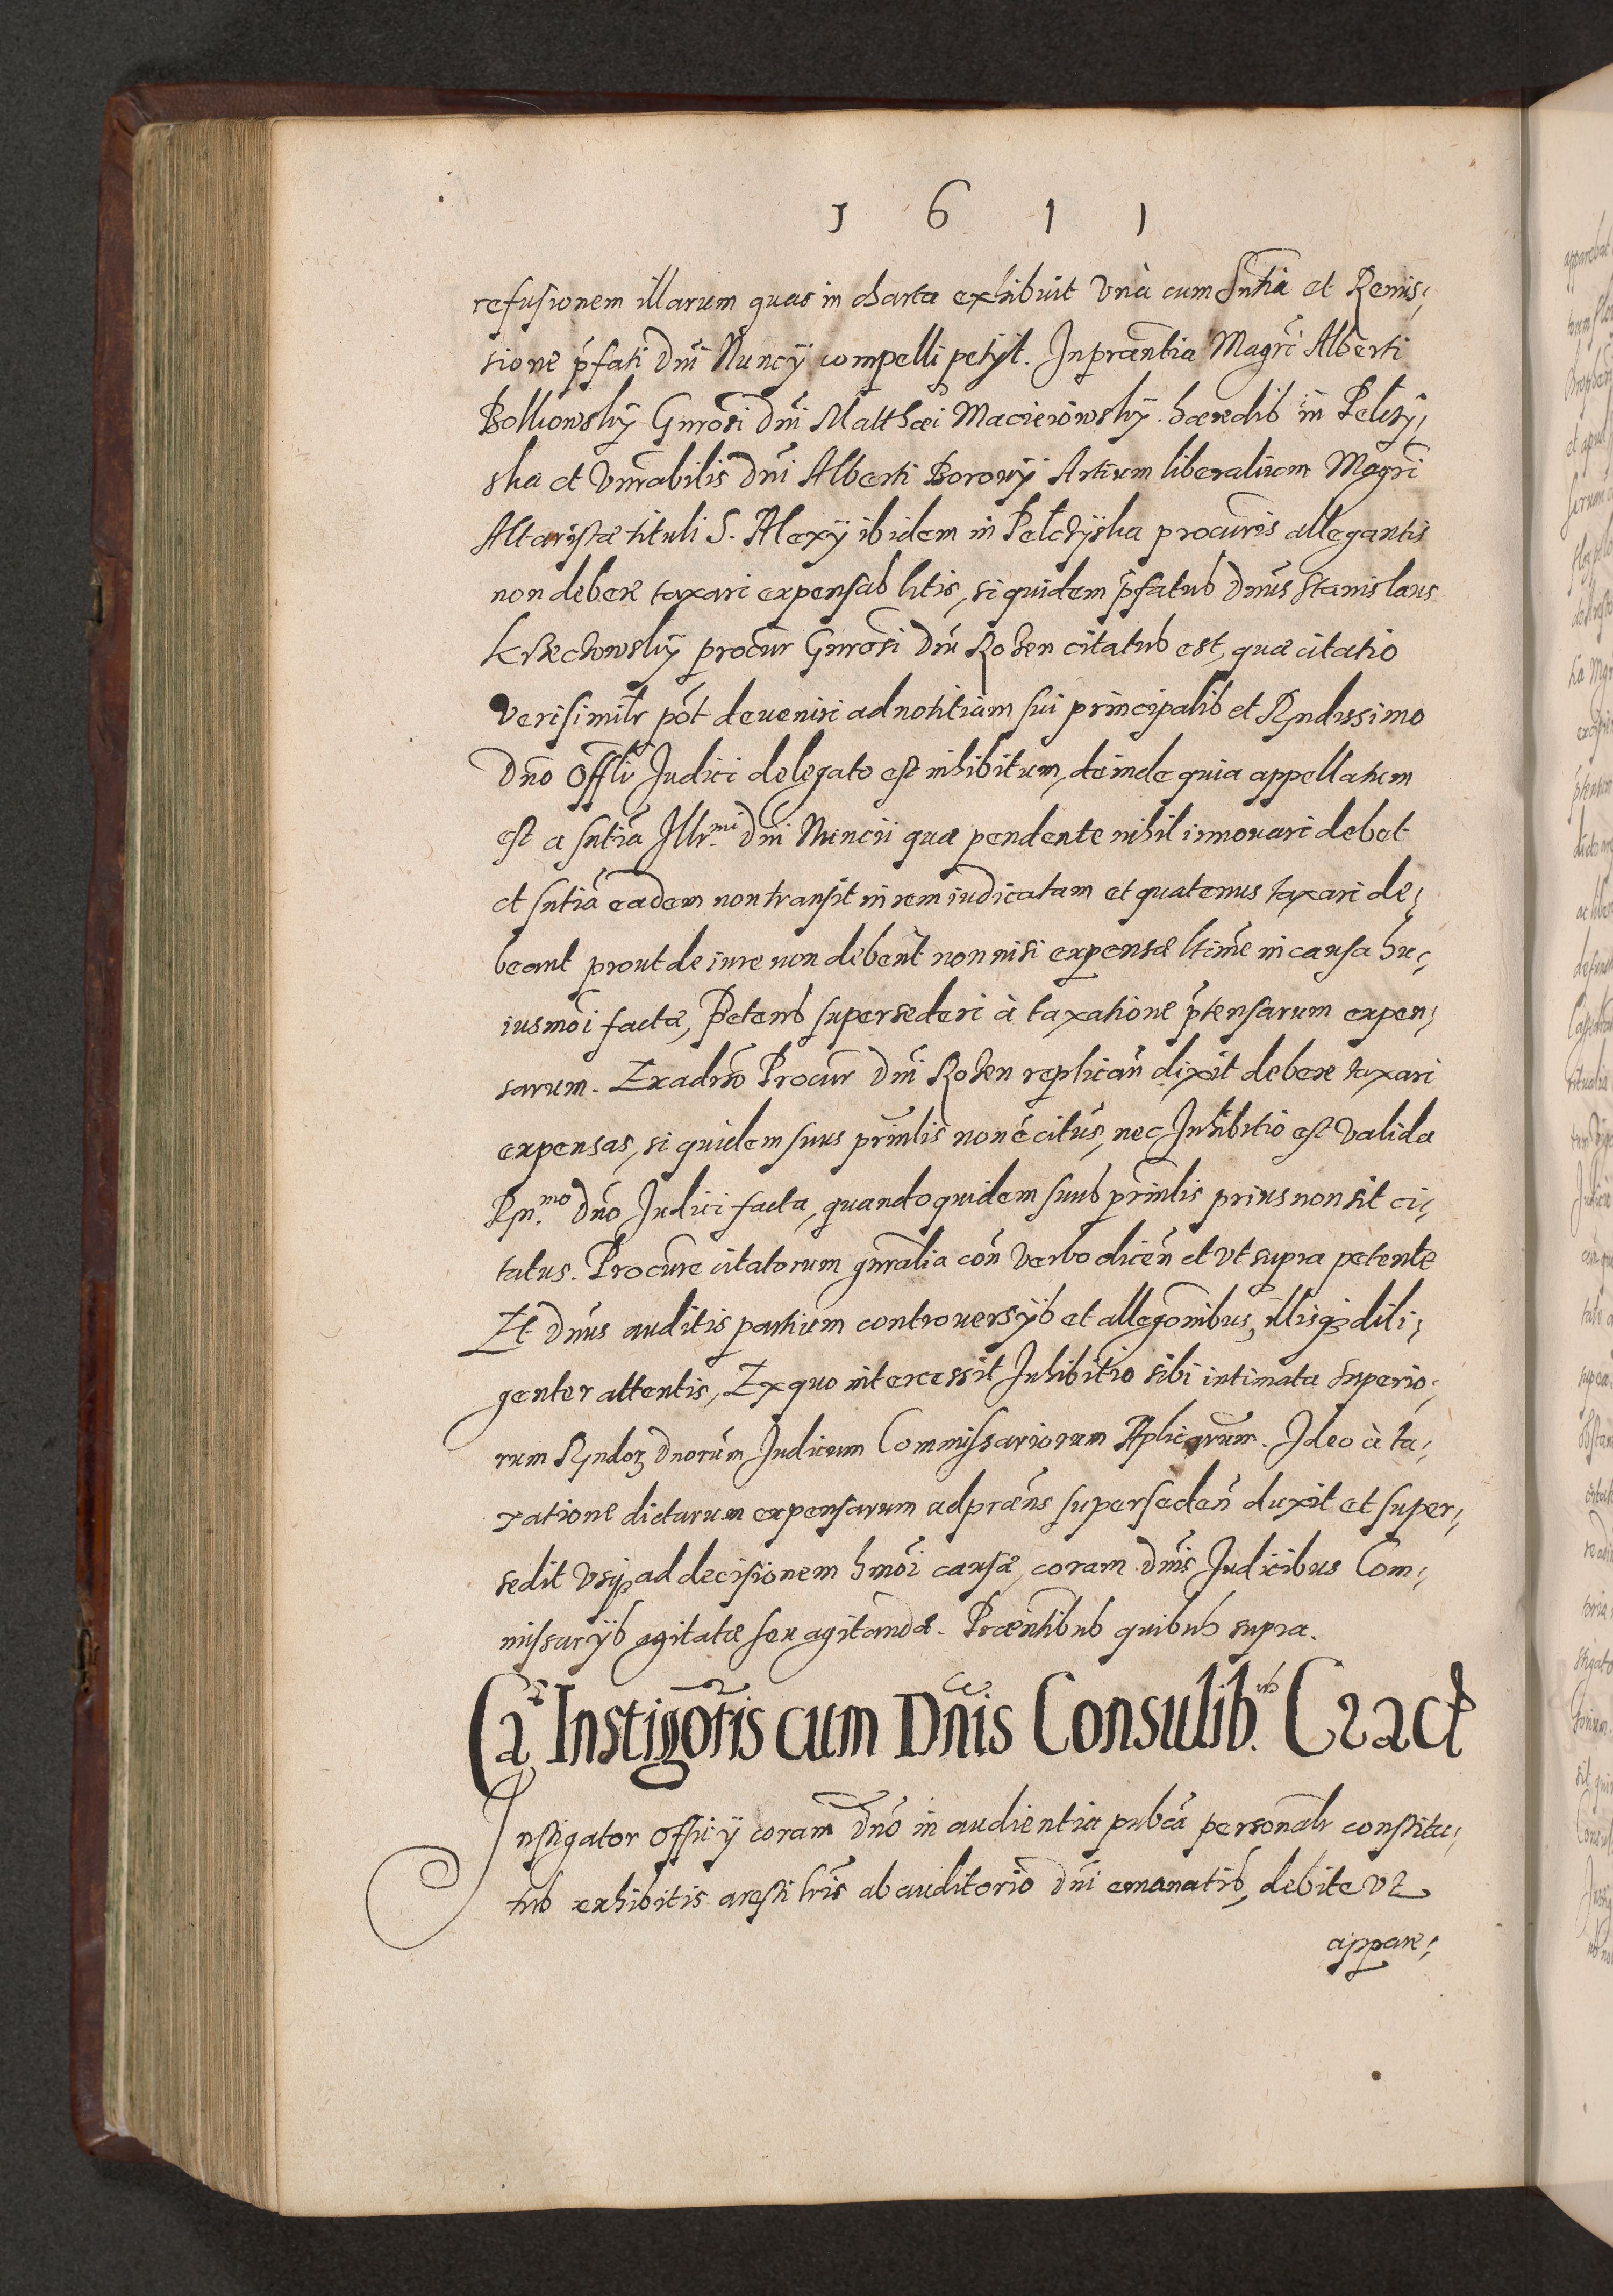 1 6 1 1
refusionem illarum quas in charta exhibuit unà cum Sntia et Remis;
sione p̃fati Dñi Nuncÿ compelli petÿt. In præntia Magri Alberti
Bolkowskÿ Gnrosi Dñi Matthæi Macieiowskÿ hæredis in Pelczÿ;
ska et Vnrabilis Dñi Alberti Borowÿ Artium liberalium Magri
Altaristæ tituli S. Alexÿ ibidem in Pelczÿska procuris allegantis
non debere taxari expensas litis, siquidem p̃fatus Dñus Stanislaus
Krzeczowskÿ procur Gnrosi Dñi Rozen citatus est, quæ citatio
verisimilr põt devenire ad notitiam sui principalis et Rñdissimo
Dño Offli Judici delegato est inhibitum, deinde quia appellatum
est a sntia Illr.mi Dñi Nuncii qua pendente nihil innovari debet
et sntia eadem non transit in rem iudicatam et quatenus taxari de;
beant prout de iure non debent non nisi expensæ ltime in causa hu;
iusmõi factæ, Petens supersederi à taxatione p̃tensarum expen;
sarum. Ex adrso Procur Dñi Rozen replican dixit debere taxari
expensas, siquidem suus prinlis non ẽ citus, nec Inhibitio est valida
Rñ.mo Dño Judici facta, quandoquidem suus prinlis prius non sit ci;
tatus. Procure citatorum gnralia con verbo dicen et ut supra petente
Et Dñus auditis partium controversÿs et allegonibus, illisq3 dili;
genter attentis, Ex quo intercessit Inhibitio sibi intimata superio;
rum Rñdorz Dnorum Judicum Commissariorum Aplicarum. Ideo à ta;
xatione dictarum expensarum ad præns superseden duxit et super;
sedit usq3 ad decisionem hmõi causæ, coram Dñis Judicibus Com;
missarÿs agitatæ seu agitandæ. Præntibus quibus supra.
Ca Instigoris cum Dñis Consulib.us Crac
Instigator Officÿ coram Dño in audientia pubca personalr constitu;
tus exhibitis aresti lris ab auditorio Dñi emanatis, debite ut
appare;